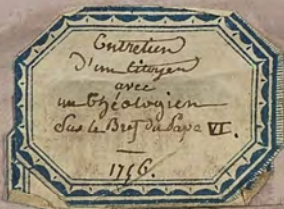 Entretien
D'un Citoyen
avec
un Théologien
Sur le Bref du Pape VI.
1796.